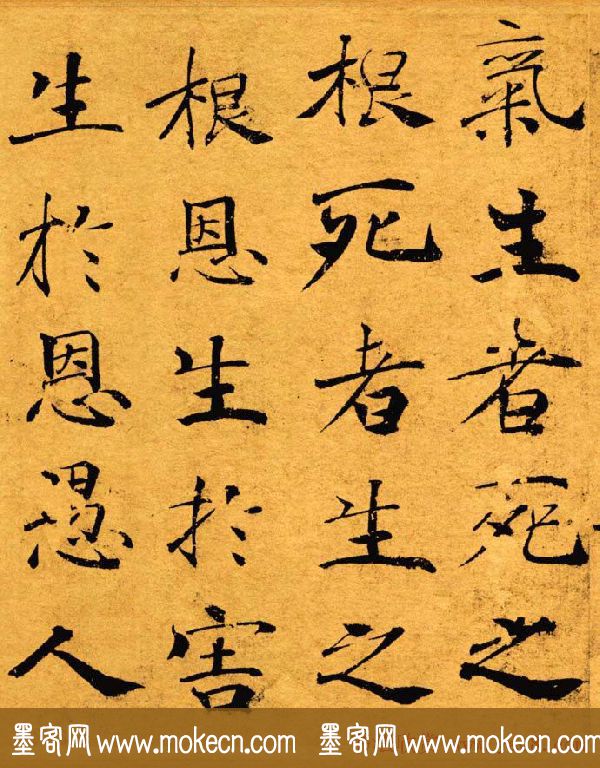 氣生者死之
根死者生之
根恩生於害
生於恩愚人
墨客网 www.mokecn.com 墨客网 www.mokecn.com